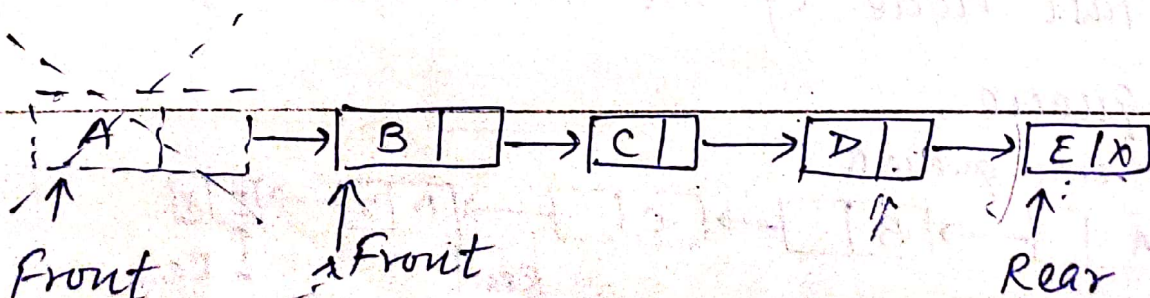 A B C D E X
Front Front Rear